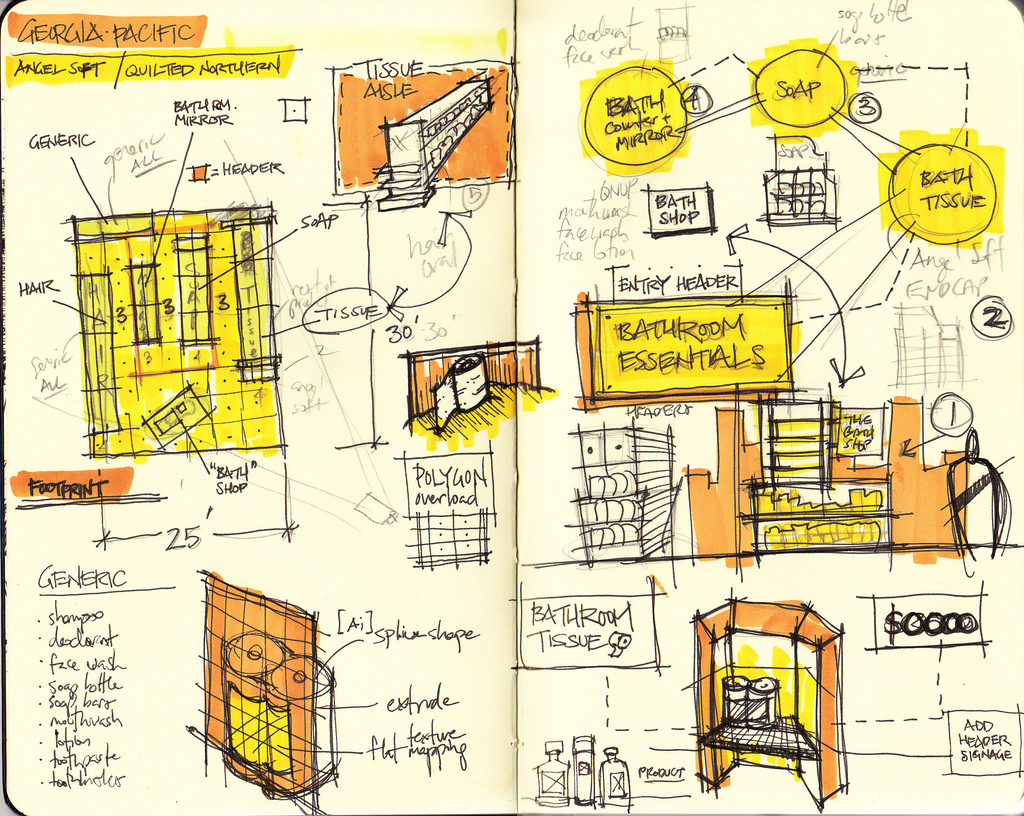 GEORGIA-PACIFIC
ANGEL SOFT / QUILTED NORTHERN
BATH RM.
MIRROR
GENERIC
generic
ALL
= HEADER
SOAP
HAIR
HAIR
3
3
3
3
SOAP
TISSUE
generic
ALL
"BATH"
SHOP
FOOTPRINT
25'
TISSUE
AISLE
5
hair
oral
TISSUE
30'
30'
2
angel
soft
POLYGON
overload
GENERIC
• shampoo
• deodorant
• face wash
• soap bottle
• soap bars
• mouthwash
• lotion
• toothpaste
• toothbrushes
[Ai] spline shape
extrude
flat texture
mapping
deodorant
face wash
soap bottle
bars
generic
BATH
Counter +
MIRROR
4
SOAP
3
SOAP
BATH
TISSUE
QNUP
mouthwash
face wash
face lotion
BATH
SHOP
Angel Soft
ENDCAP
2
ENTRY HEADER
BATHROOM
ESSENTIALS
HEADERS
THE
BATH
SHOP
1
BATHROOM
TISSUE
$0000
PRODUCT
ADD
HEADER
SIGNAGE